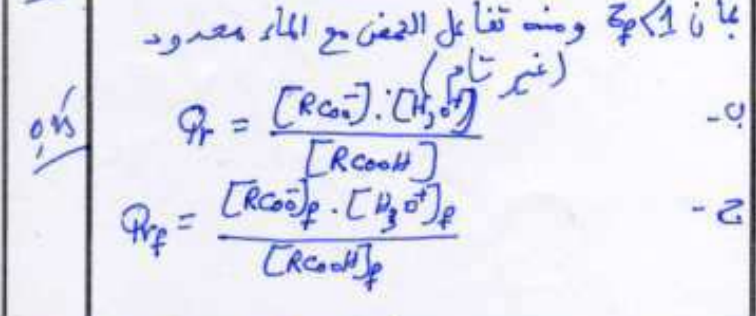 بما أن τf<1 ومنه تفاعل الحمض مع الماء محدود
(غير تام)
ب- Qr = [RCOO⁻].[H₃O⁺] / [RCOOH]
0,25
ج- Qrf = [RCOO⁻]f.[H₃O⁺]f / [RCOOH]f